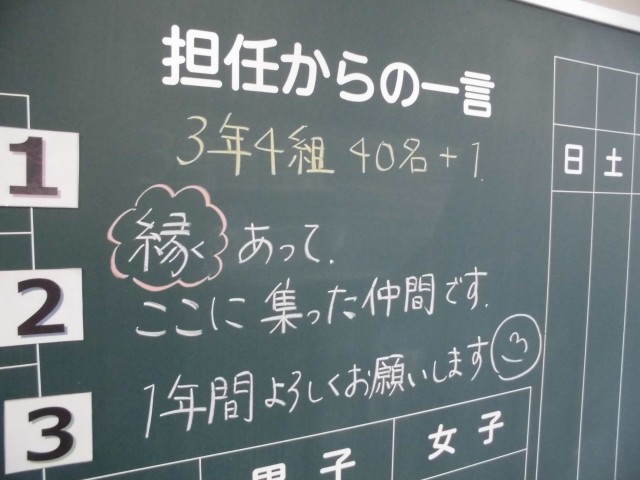 担任からの一言
3年4組 40名+1.
縁あって.
ここに集った仲間です.
1年間よろしくお願いします
1
2
3
日 土
男子 女子